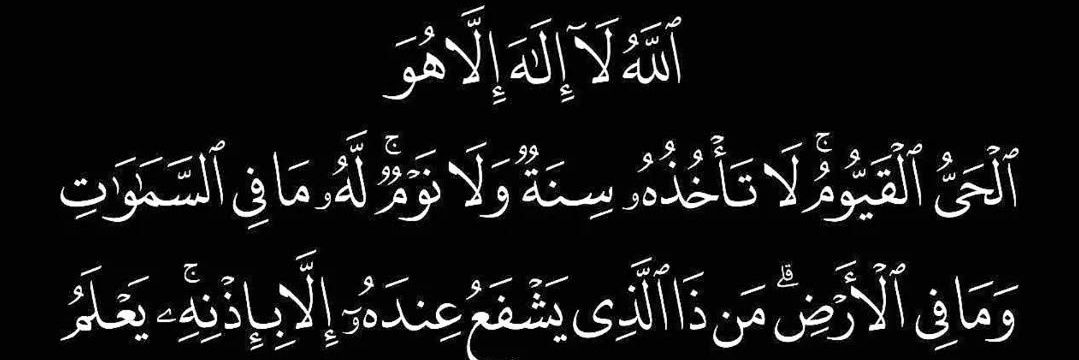 ٱللَّهُ لَآ إِلَٰهَ إِلَّا هُوَ
ٱلْحَىُّ ٱلْقَيُّومُ ۚ لَا تَأْخُذُهُۥ سِنَةٌ وَلَا نَوْمٌ ۚ لَّهُۥ مَا فِى ٱلسَّمَٰوَٰتِ
وَمَا فِى ٱلْأَرْضِ ۗ مَن ذَا ٱلَّذِى يَشْفَعُ عِندَهُۥٓ إِلَّا بِإِذْنِهِۦ ۚ يَعْلَمُ